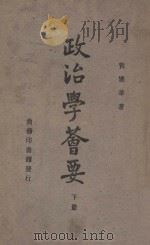 著
政治學薈要
下冊
商務印書館發行